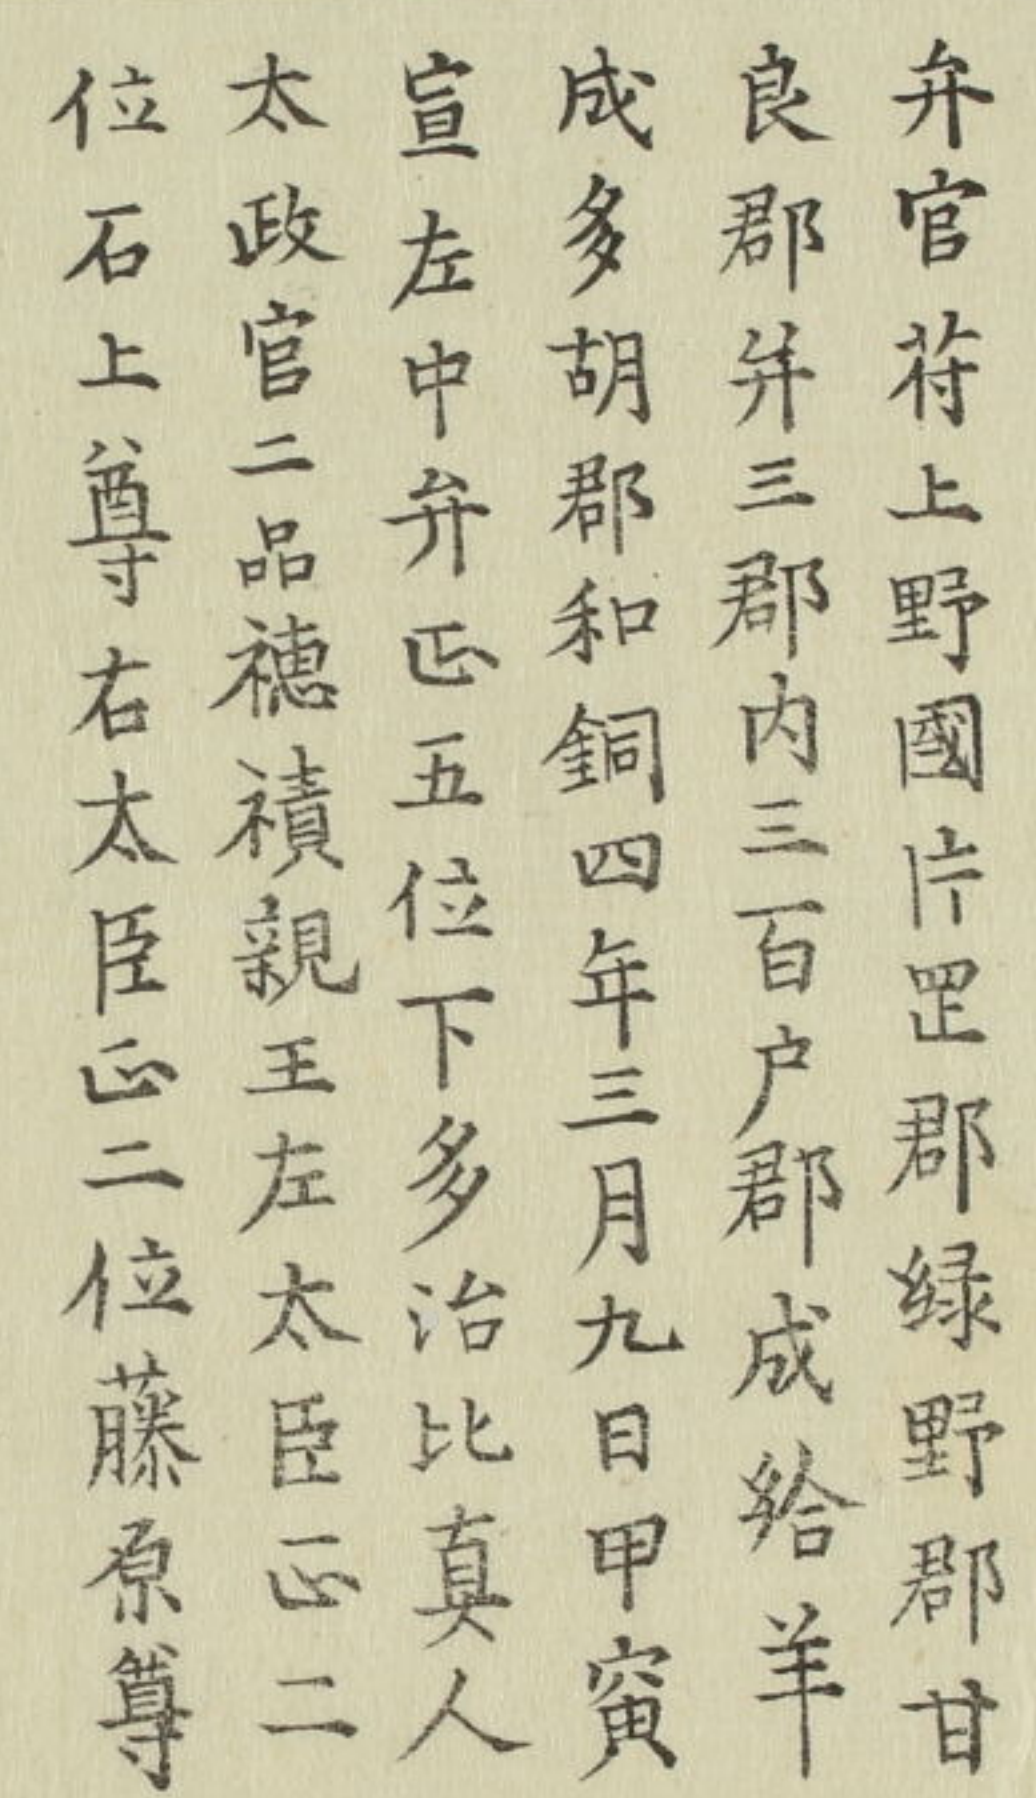 弁官苻上野國片罡郡緑野郡甘
良郡并三郡内三百户郡成給羊
成多胡郡和銅四年三月九日甲寅
宣左中弁正五位下多治比真人
太政官二品穂積親王左太臣正二
位石上尊右太臣正二位藤原尊